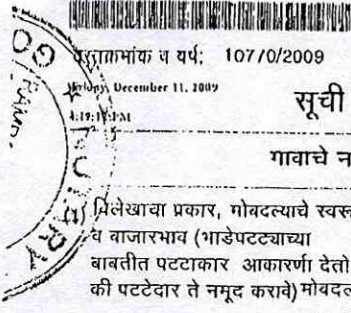 दस्तक्रमांक व वर्ष: 10770/2009
Friday, December 11, 2009
सूची
गावाचे न
(1) विलेखाचा प्रकार, मोबदल्याचे स्वरू
व बाजारभाव (भाडेपटट्याच्या
बाबतीत पटटाकार आकारणी देतो
की पटटेदार ते नमूद करावे) मोबदल